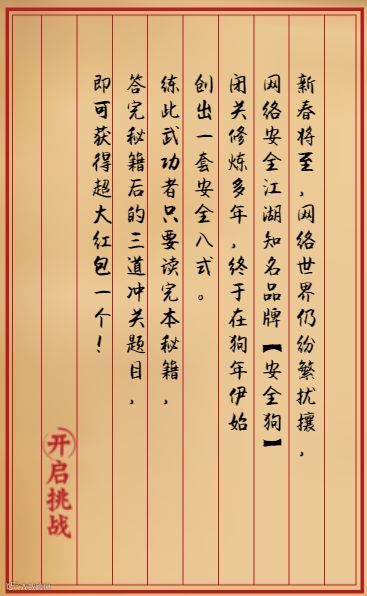 新春将至，网络世界仍纷繁扰攘，
网络安全江湖知名品牌【安全狗】
闭关修炼多年，终于在狗年伊始
创出一套安全八式。
练此武功者只要读完本秘籍，
答完秘籍后的三道冲关题目，
即可获得超大红包一个！
开启挑战